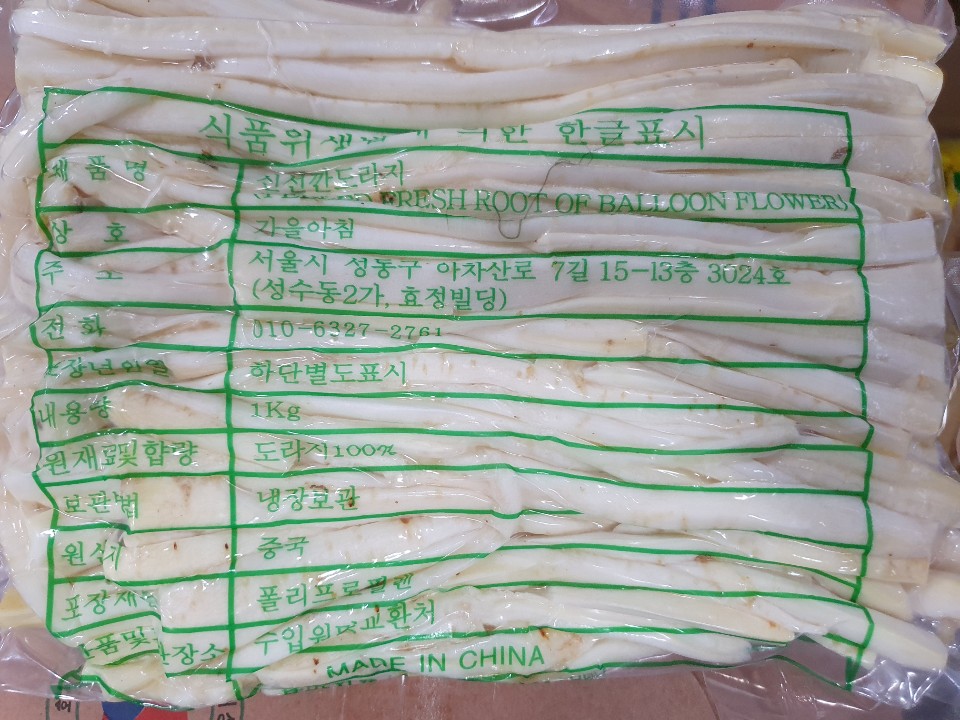 한글표시
제품명
깐도라지
FRESH ROOT OF BALLOON FLOWER)
상 호
가을아침
주 소
서울시 성동구 아차산로 7길 15-13층 3024호
(성수동2가, 효정빌딩)
전 화
010-6327-2761
하단별도표시
내용량
1Kg
원재료및함량
도라지100%
보관법
냉장보관
원산지
중국
포장재질
폴리프로필렌
수입원및교환처
MADE IN CHINA